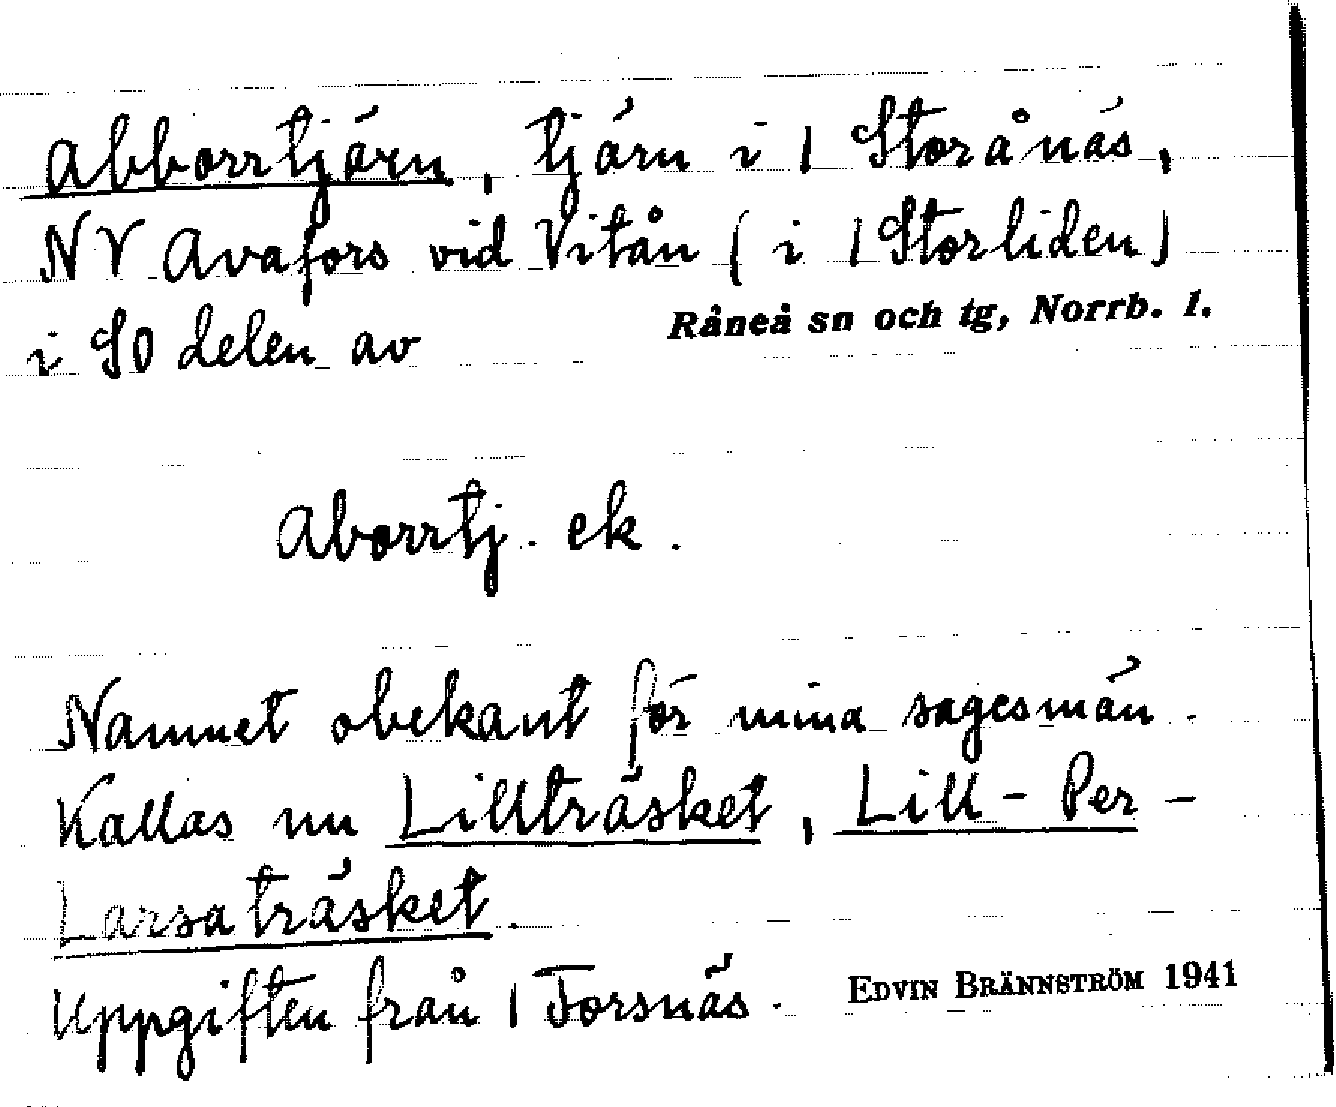 Abborrtjärn, tjärn i / Storånäs,
NV Avafors vid Vitån (i / Storliden)
i SO delen av Råneå sn och tg, Norrb. l.
Aborrtj. ek.
Namnet obekant för mina sagesmän.
Kallas nu Lillträsket, Lill-Per-
Larsaträsket.
Uppgiften från / Forsnäs. EDVIN BRÄNNSTRÖM 1941